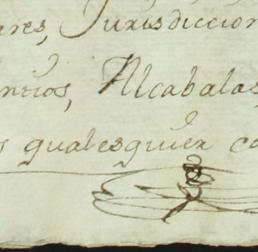 ares, Jurisdiccion
Alcabalas,
s qualesquier ca